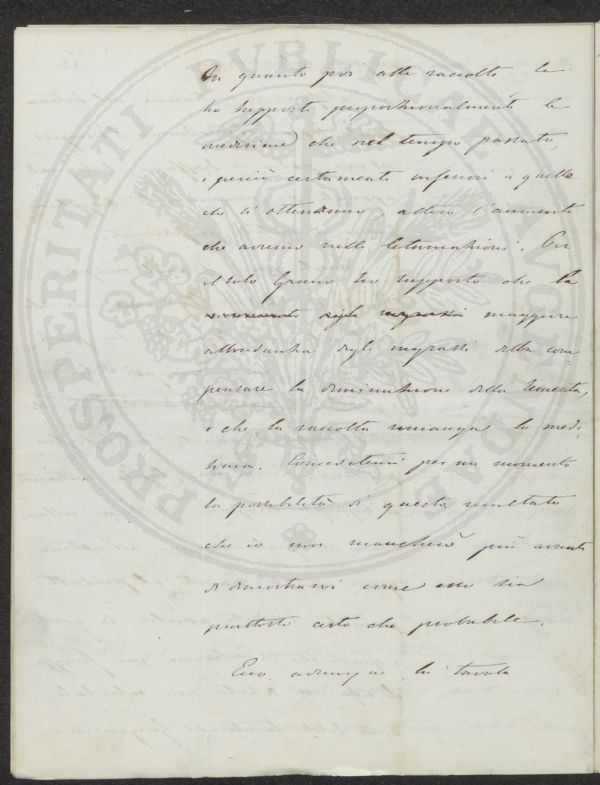 In quanto poi alle raccolte le
ho supposte proporzionalmente le
medesime che nel tempo passato,
e perciò certamente inferiori a quelle
che si otterranno, atteso l'aumento
che avremo nelle
il solo Grano ho supposto che la
degli maggiore
abbondanza degli ingrassi debba com=
pensare la diminuzione della sementa,
e che la raccolta rimanga la mede=
sima. Concedetemi per un momento
la possibilità di questo resultato
che io non mancherò più avanti
di dimostrarvi come esso sia
piuttosto certo che probabile.
Ecco adunque la tavola
PROSPERITATI PVBLICAE AVGENDAE